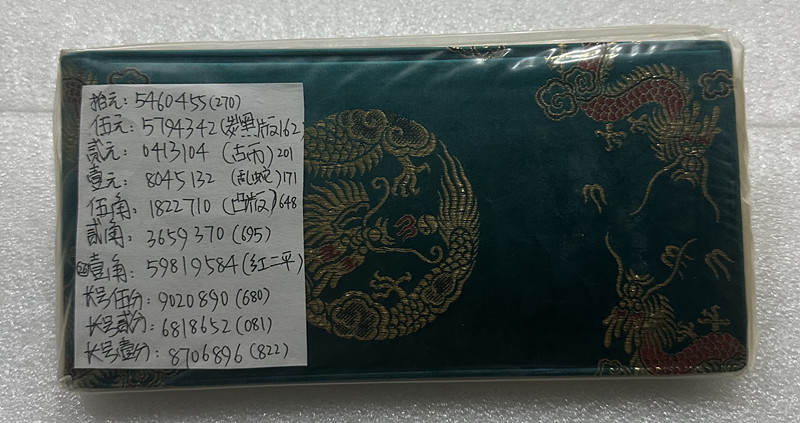 拾元：5460455(270)
伍元：5794342(炭黑版162
贰元：0413104 (古币)201
壹元：8045132 (乱蛇)171
伍角：1822710 (凸版)648
贰角：3659370(695)
壹角：59819584(红二平)
长号伍分：9020890(680)
长号贰分：6818652(081)
长号壹分：8706896(822)